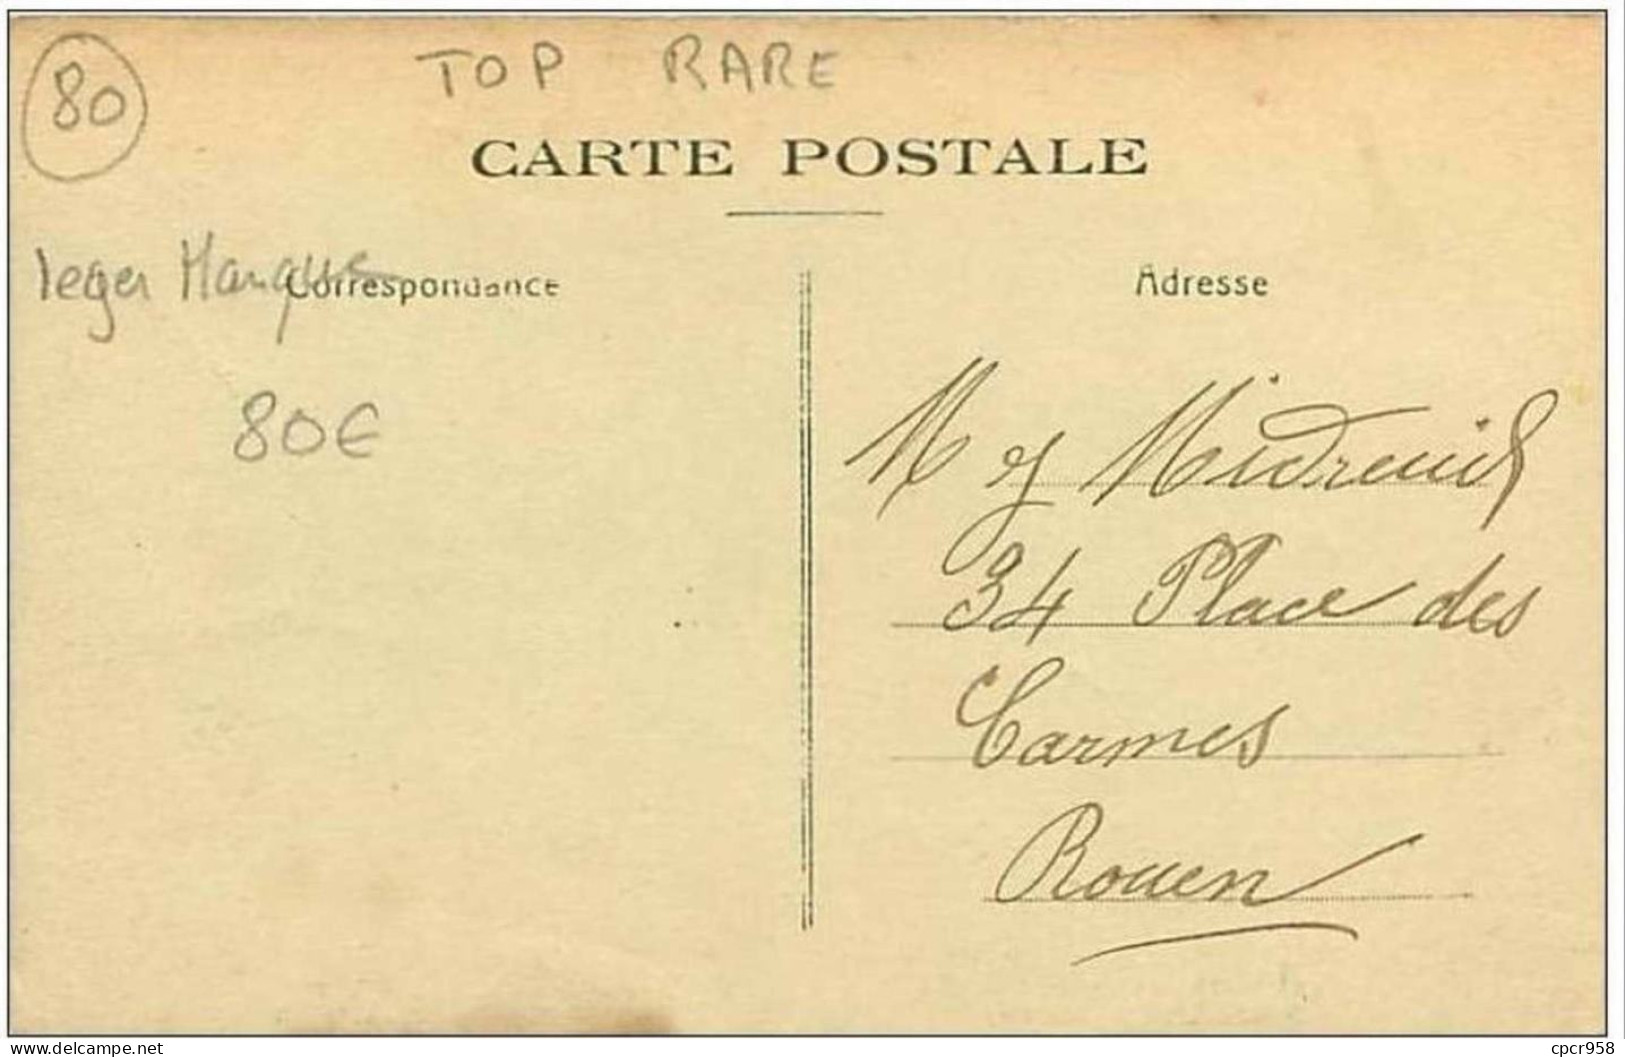 80
TOP RARE
CARTE POSTALE
leger Manque
Correspondance
80€
Adresse
M
34 Place des
Carmes
Rouen
https://www.delcampe.net
cpcr958